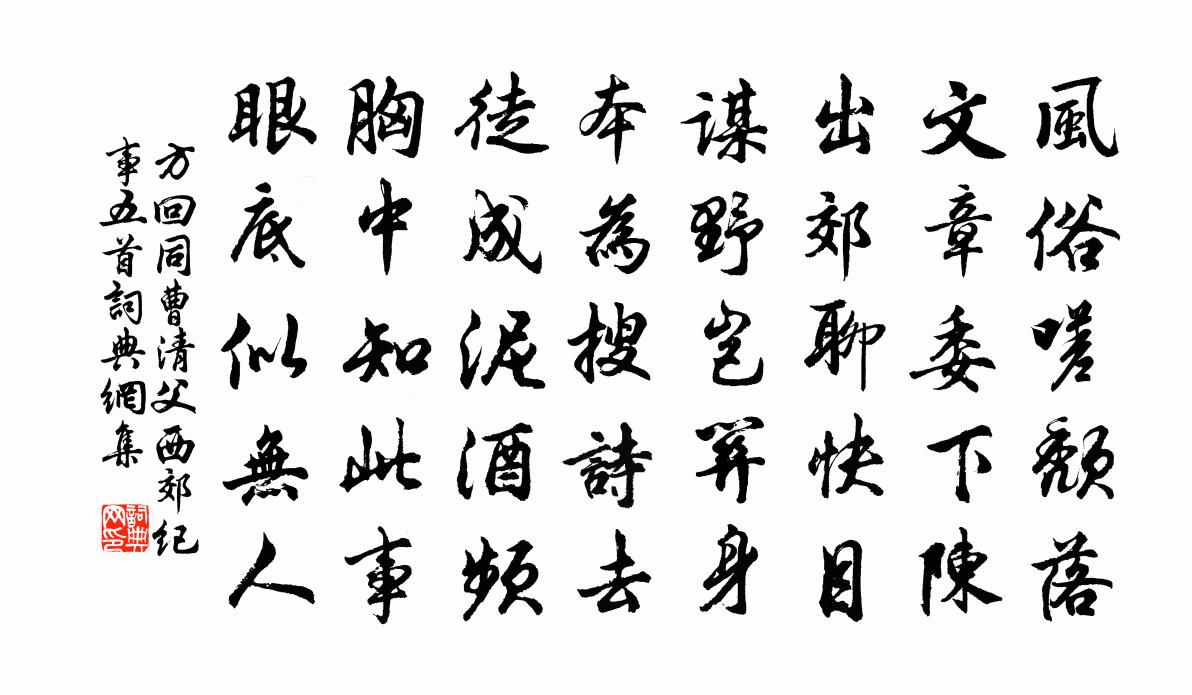 風俗嗟頹落
文章委下陳
出郊聊快目
謀野豈關身
本為搜詩去
徒成泥酒頻
胸中知此事
眼底似無人
方回同曹清父西郊紀
事五首詞典網集
詞典
网印